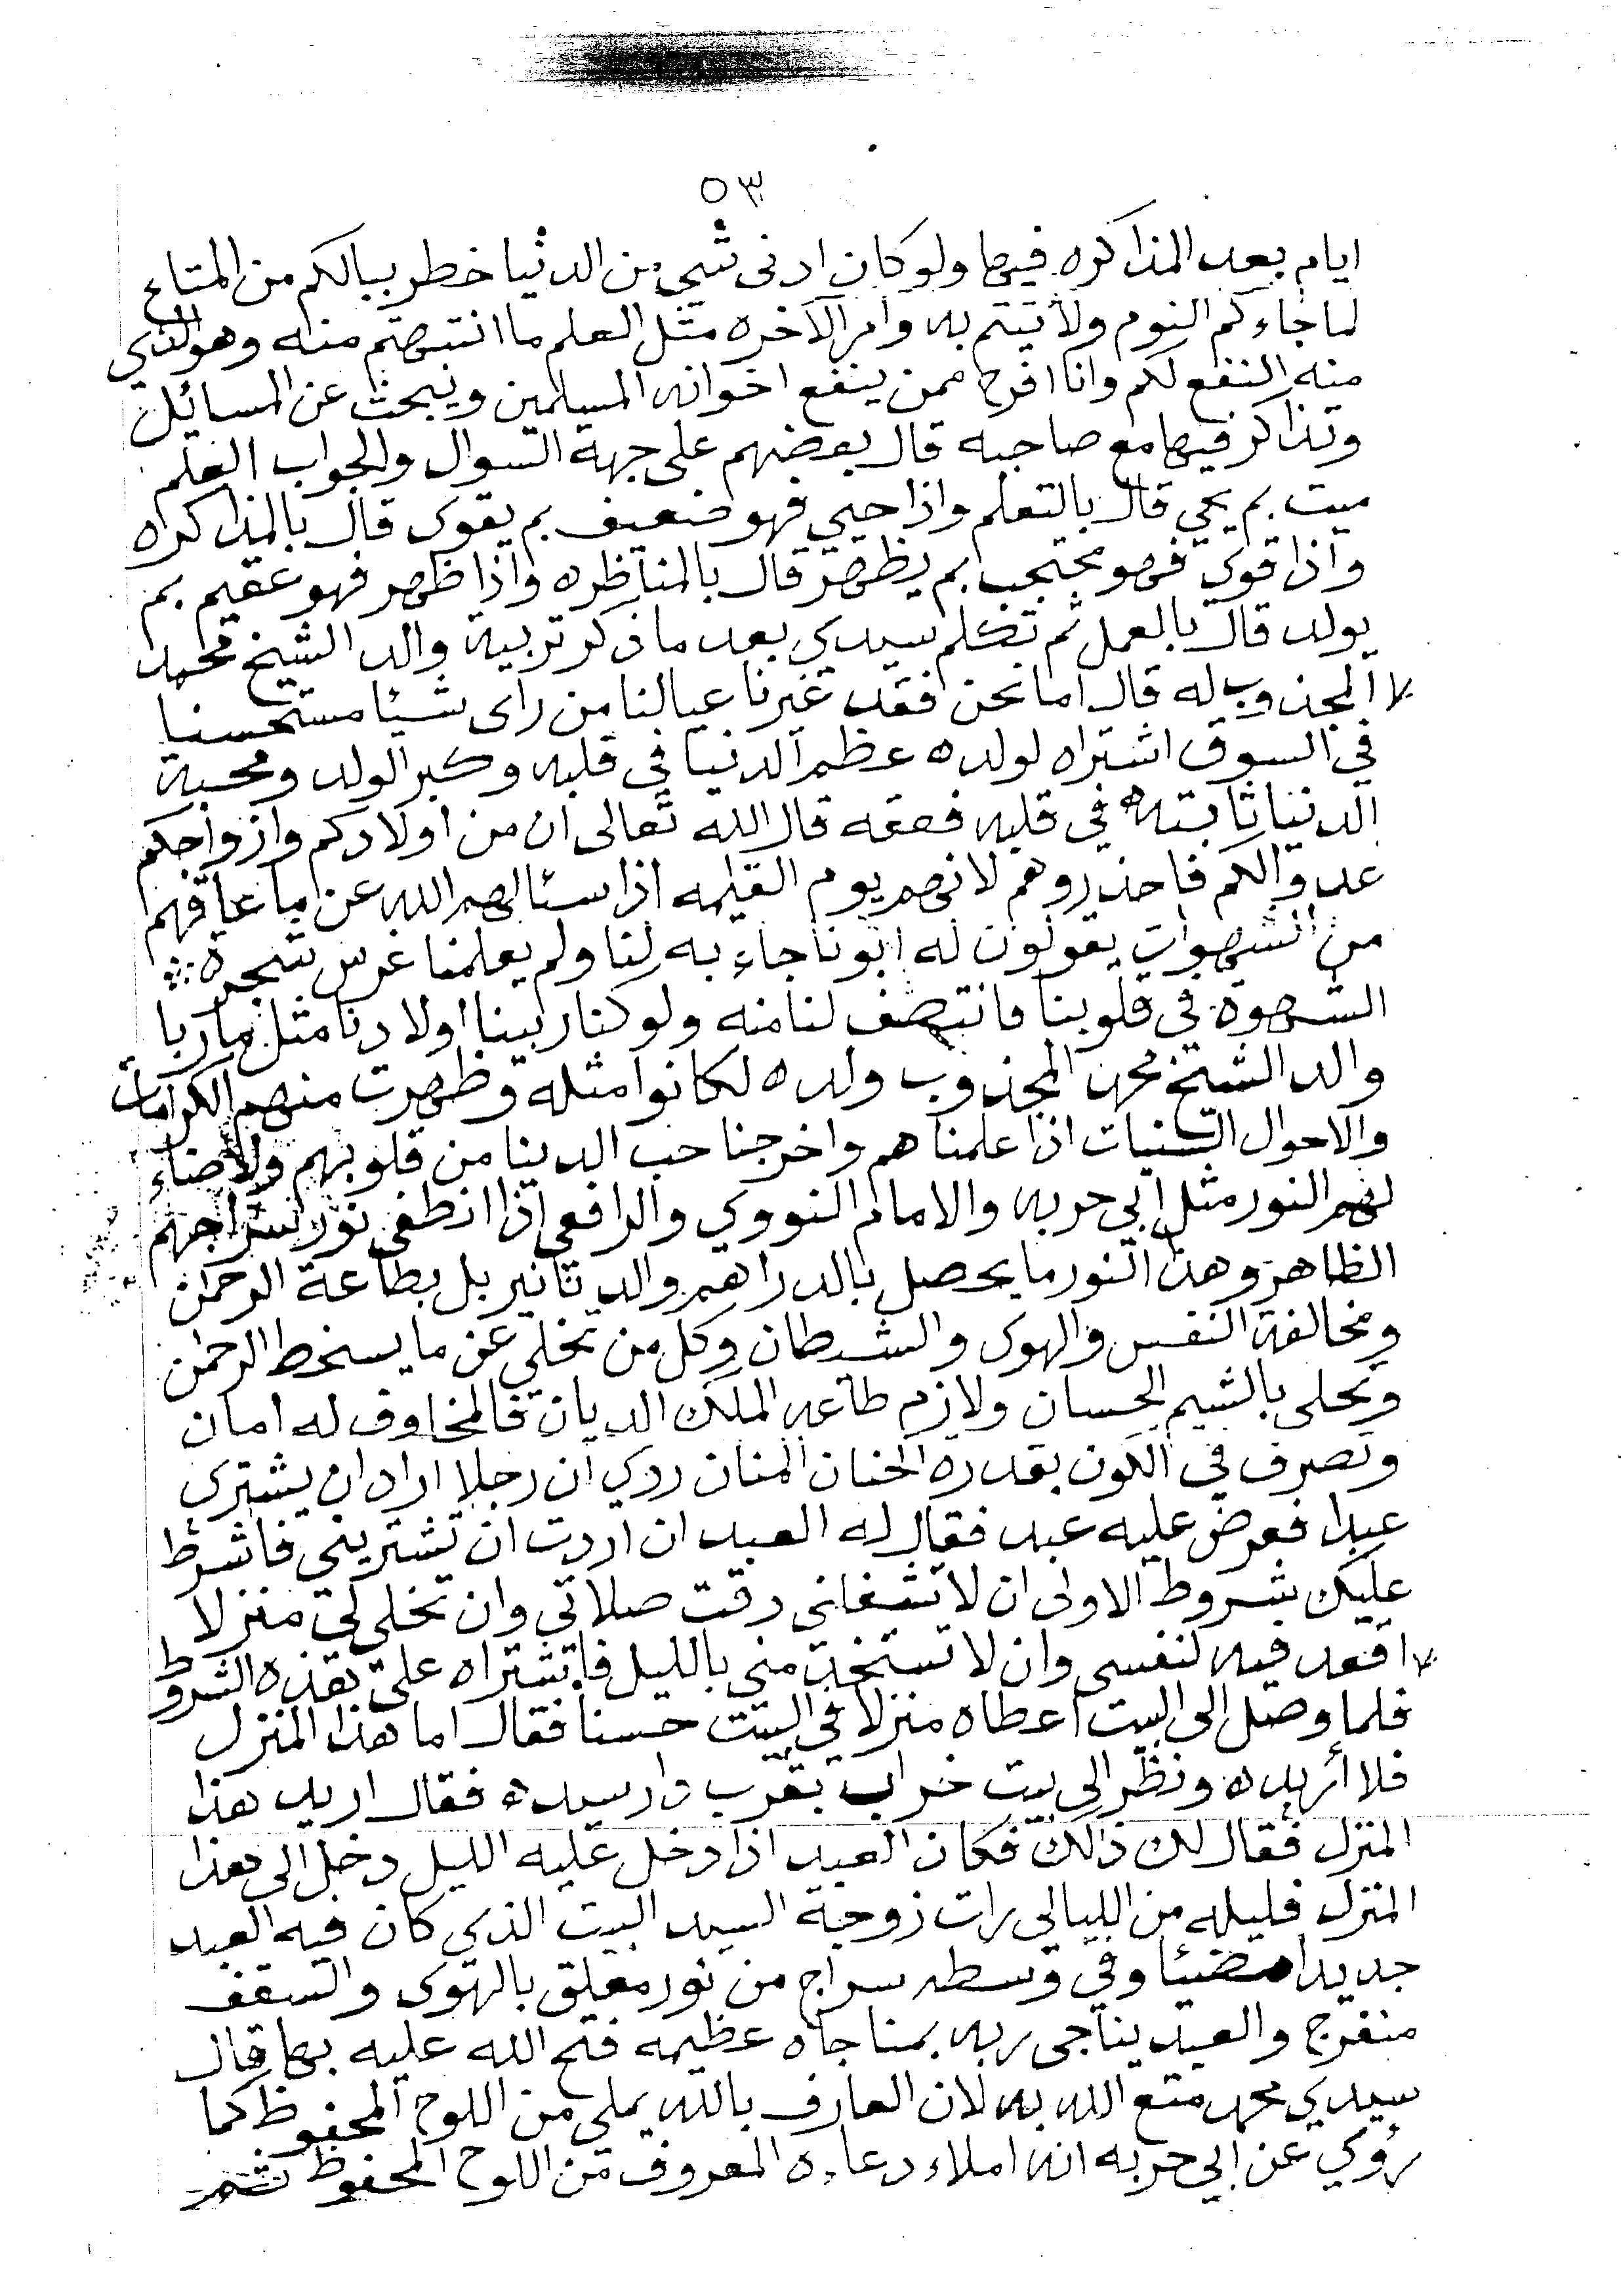 ٥٣
ايام بعد المذاكره فيها ولو كان ادنى شيء من الدنيا خطر ببالكم من المتاع
لما جاءكم النوم ولا تيتم به وامر الآخره مثل العلم ما انتبهتم منه وهو الذي
منه النفع لكم وانا افرح ممن ينفع اخوانه المسلمين ويبحث عن المسائل
وتذاكر فيها مع صاحبه قال بعضهم على جهة السوال والجواب العلم
ميت بم يحي قال بالتعلم واذا حيي فهو ضعيف بم يقوى قال بالمذاكراه
واذا قوي فهو محتجب بم يظهر قال بالمناظره واذا ظهر فهو عقيم بم
يولد قال بالعمل ثم تكلم سيدي بعد ما ذكر تربية والد الشيخ محمد
المجذوب له قال اما نحن فقد غيرنا عيالنا من راى شيئا مستحسنا
في السوق اشتراه لولده عظم الدنيا في قلبه وكبر الولد ومحبة
الدنيا ثابته في قلبه فعقه قال الله تعالى ان من اولادكم وازواجكم
عدوا لكم فاحذروهم لانهم يوم القيمه اذا سئالهم الله عن ما عاقهم
من الشهوات يقولون له ابونا جاء به لنا ولم يعلمنا غرس شجرة
الشهوة في قلوبنا فانتصف لنا منه ولو كنا ربينا اولادنا مثل ما ربا
والد الشيخ محمد المجذوب ولده لكانوا مثله وظهرت منهم الكرامات
والاحوال السنيات اذا علمناهم واخرجنا حب الدينا من قلوبهم ولأضاء
لهم النور مثل ابي حربه والامام النووي والرافعي اذا انطفى نور سراجهم
الظاهر وهذا النور ما يحصل بالدراهم والدنانير بل بطاعة الرحمن
ومخالفة النفس والهوى والشيطان وكل من تخلى عن ما يسخط الرحمن
وتحلى بالشيم الحسان ولازم طاعه الملك الديان فالمخاوف له امان
وتصرف في الكون بقدره الحنان المنان روي ان رجلا اراد ان يشترى
عبدا فعرض عليه عبد فقال له العبد ان اردت ان تشتريني فاشرط
عليك شروط الاولى ان لا تشغلني وقت صلاتي وان تخلي لي منزلا
اقعد فيه لنفسي وان لا تستخدمني بالليل فاشتراه على هذه الشروط
فلما وصل الى البيت اعطاه منزلا في البيت حسنا فقال اما هذا المنزل
فلا أريده ونظر الى بيت خراب بقرب دار سيده فقال اريد هذا
المنزل فقال لك ذالك فكان العبد اذا دخل عليه الليل دخل الى هذا
المنزل فليله من الليالي رات زوجة السيد البيت الذي كان فيه العبد
جديدا مضيئا وفي وسطه سراج من نور معلق بالهوى والسقف
منفرج والعبد يناجى ربه بمناجاه عظيمه فتح الله عليه بها قال
سيدي محمد متع الله به لان العارف بالله يملى من اللوح المحفوظ كما
روي عن ابي حربه انه املاء دعاءه المعروف من اللوح المحفوظ ثم